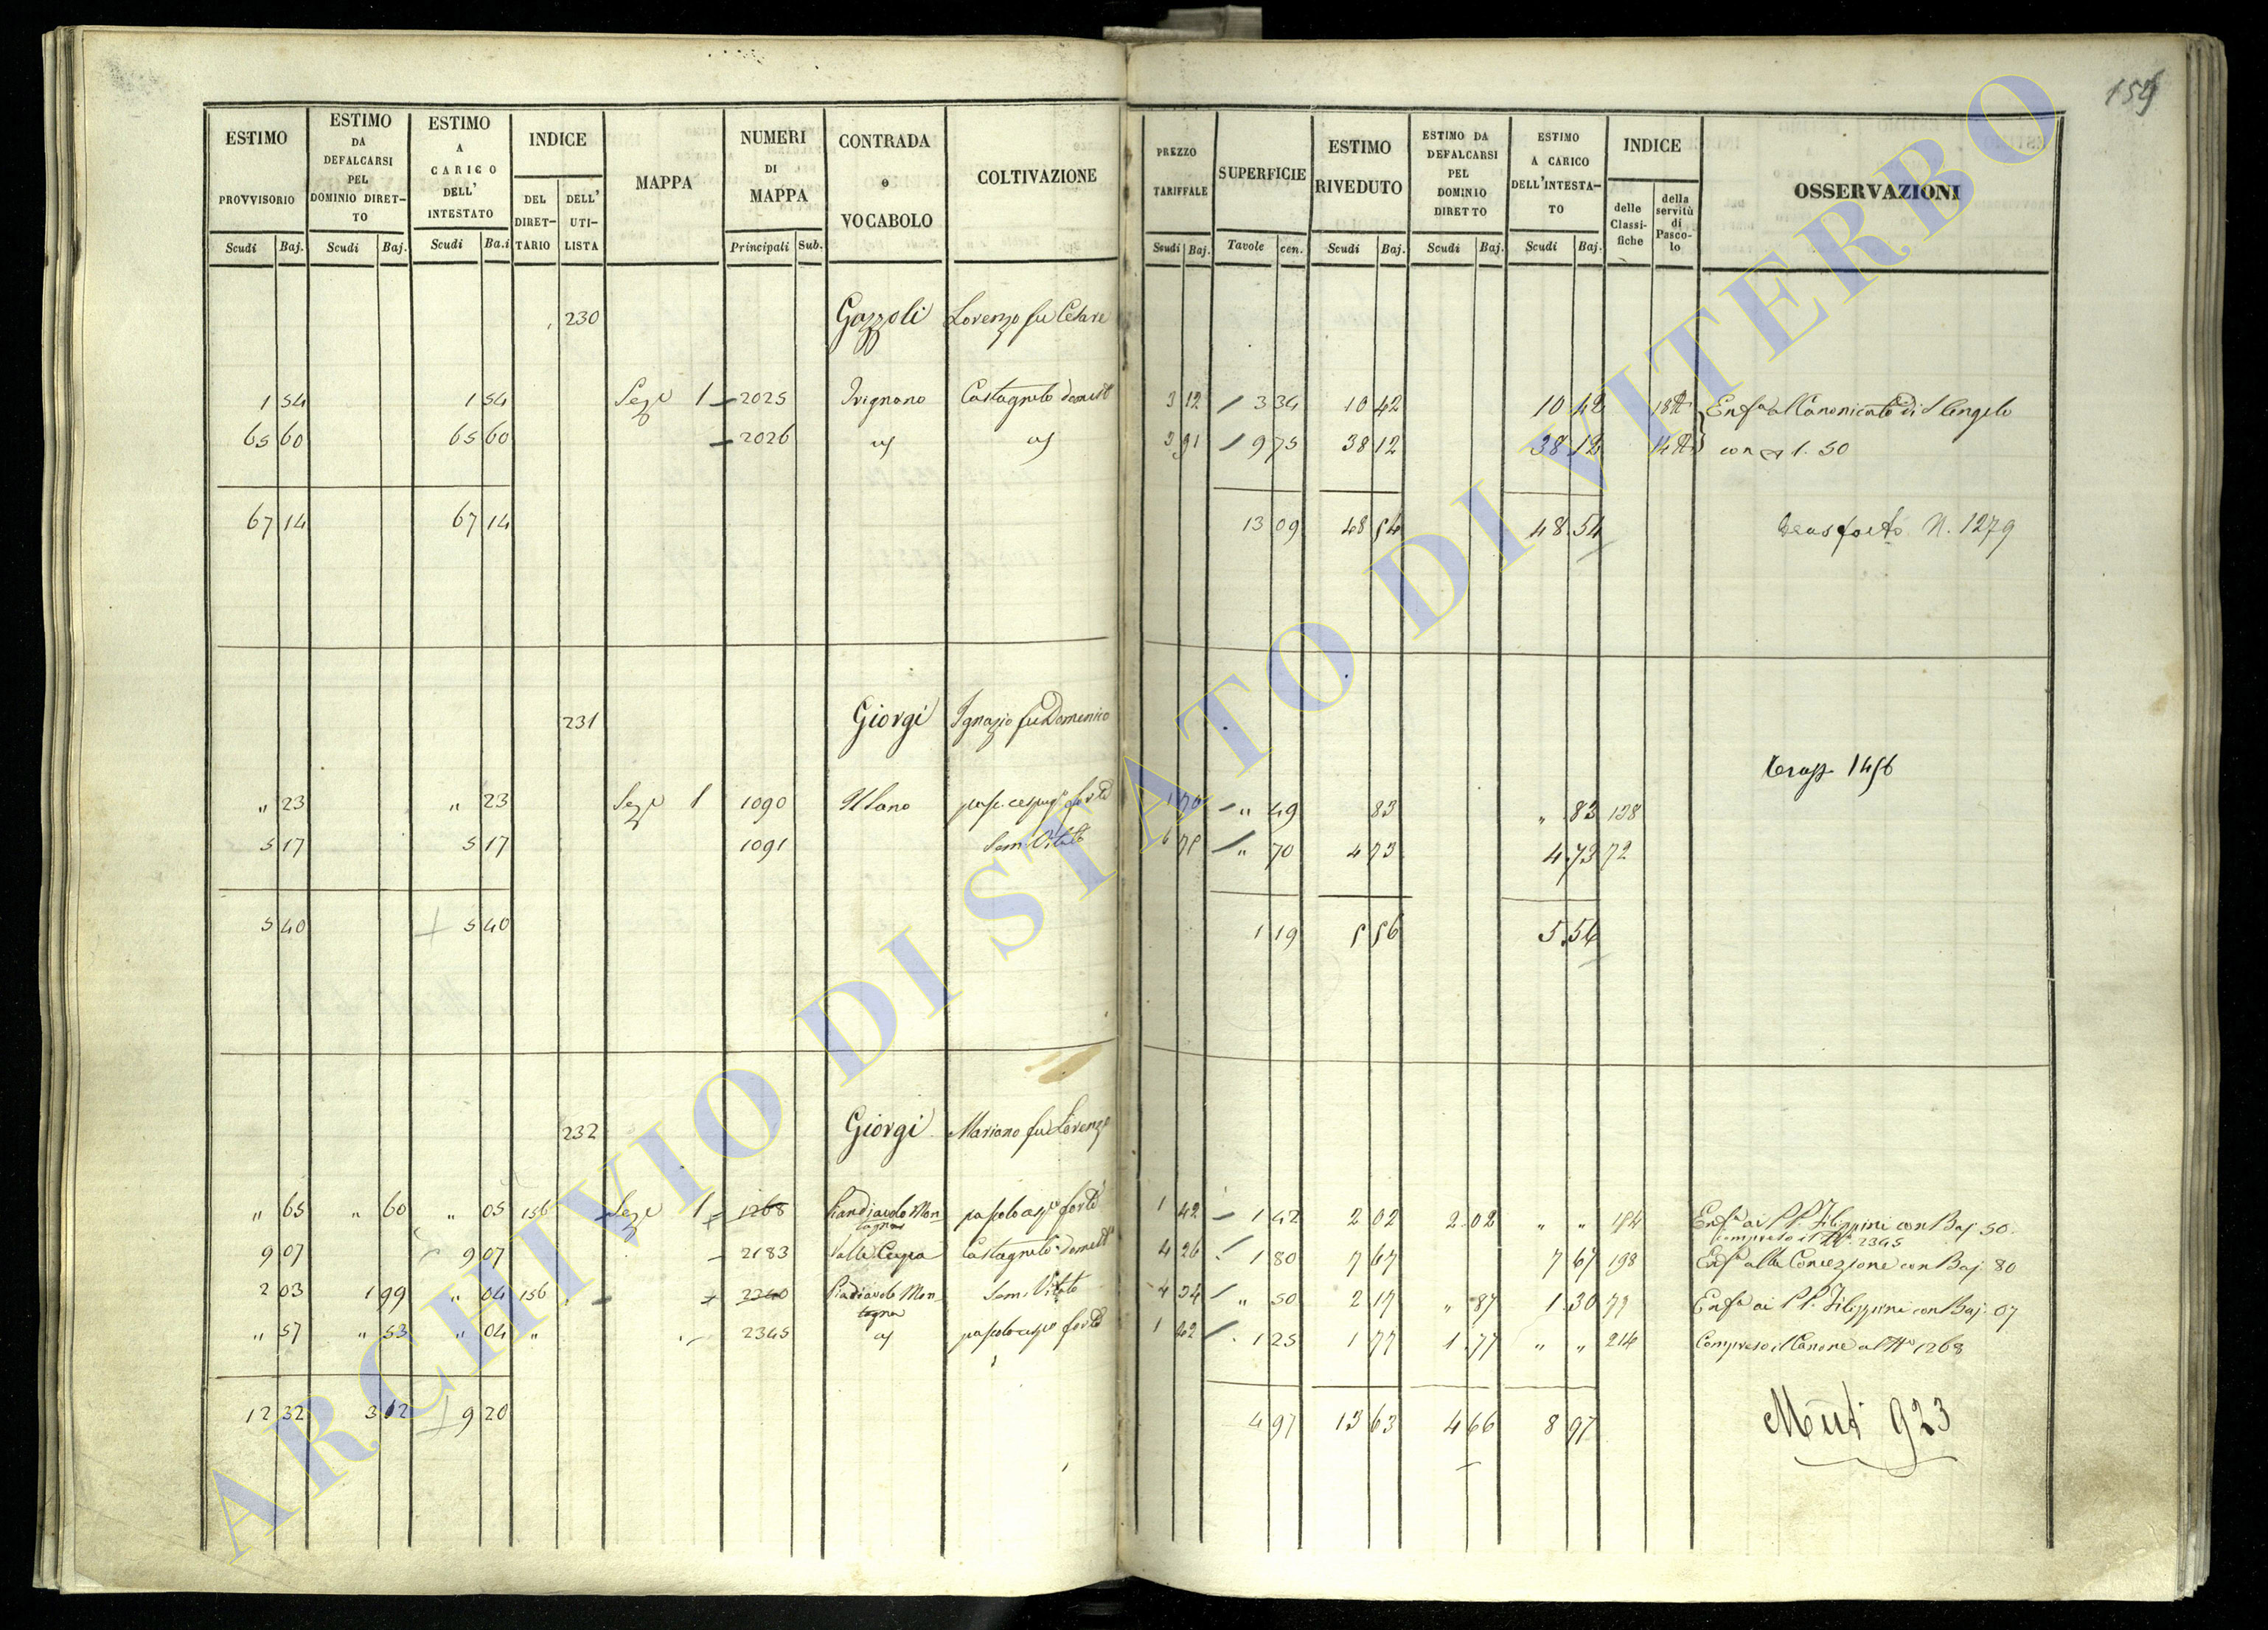 159
ESTIMO PROVVISORIO Scudi Baj.
ESTIMO DA DEFALCARSI PEL DOMINIO DIRET-TO Scudi Baj.
ESTIMO A CARICO DELL' INTESTATO Scudi Ba.i
INDICE DEL DIRET-TARIO DELL' UTI-LISTA
MAPPA
NUMERI DI MAPPA Principali Sub.
CONTRADA o VOCABOLO
COLTIVAZIONE
PREZZO TARIFFALE Scudi Baj.
SUPERFICIE Tavole cen.
ESTIMO RIVEDUTO Scudi Baj.
ESTIMO DA DEFALCARSI PEL DOMINIO DIRETTO Scudi Baj.
ESTIMO A CARICO DELL'INTESTA-TO Scudi Baj.
INDICE delle Classi-fiche della servitù di Pasco-lo
OSSERVAZIONI
230 Gozzoli Lorenzo fu Cesare
1 54 1 54 Sez. 1 2025 Castagneto domest 3 12 3 34 10 42 10 42 Enfa al Canonicato di S Angelo
65 60 65 60 2026 3 91 9 75 38 12 38 12 con 1.50
67 14 67 14 13 09 48 54 48.54 Trasporto N. 1279
231 Giorgi Ignazio fu Domenico
Trasp. 1456
" 23 " 23 Sez. 1 1090 Ulano 1 70 " 49 83 " 83 138
5 17 5 17 1091 Sem. Vitato " 70 4 73 4.73 72
5 40 5 40 1 19 5 56 5.56
232 Giorgi Mariano fu Lorenzo
" 65 " 60 " 05 156 Sez. 1 1268 Piandiavolo Mon-tagna 1 42 1 42 2 02 2.02 " " Enfa ai PP. Filippini con Baj 50.
compreso il N. 2345
9 07 9 07 2183 Valle Cupa Castagneto domest 4 26 1 80 7 67 7 67 198 Enfa alla Concezione con Baj 80
2 03 1 99 " 04 156 2340 Piadiavolo Mon-tagna Sem. Vitato 4 34 " 50 2 17 " 87 1.30 79 Enfa ai PP. Filippini con Baj. 07
" 57 " 53 " 04 " 2345 1 42 1 25 1 77 1.77 " " 214 Compreso il Canone al No 1268
12 32 3 12 9 20 4 97 13 63 4 66 8 97 Mut 923
ARCHIVIO DI STATO DI VITERBO